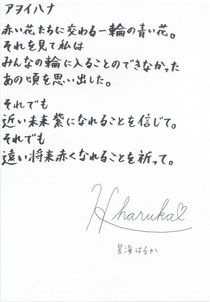 アヲイハナ
赤い花たちに交わる一輪の青い花。
それを見て私は
みんなの輪に入ることのできなかった
あの頃を思い出した。
それでも
近い未来紫になれることを信じて。
それでも
遠い将来赤くなれることを祈って。
Haruka♡
星海はるか